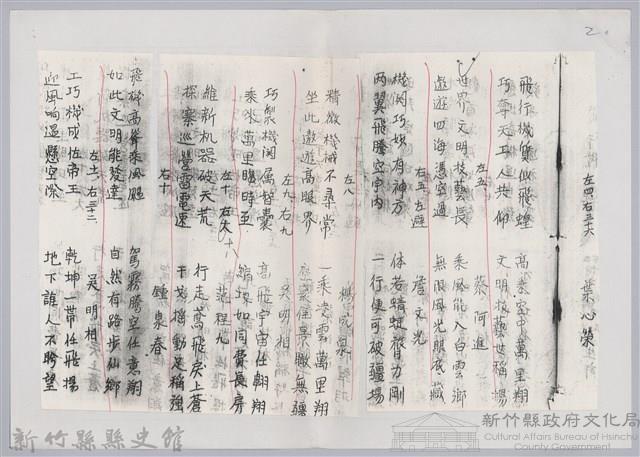 2.
左四右三十六
葉心榮
飛行機質似飛蝗
高架空中萬里翔
巧奪天工人共仰
文明技藝世稱揚
左五
蔡阿進
世界文明技藝長
乘風能入白雲鄉
遨遊四海憑空過
無限風光眼底藏
右五左避
詹文光
機関巧妙有神方
体若蜻蜓膂力剛
両翼飛騰空宇内
一行便可破疆場
左八
精微機械不尋常
一乘凌雲萬里翔
坐此遨遊高眼界
無疆
左九右九
吳明相
巧製機関属智囊
高飛宇宙任翱翔
乘來萬里瞬時至
縮地如同費長房
左十
范程九
維新机器破天荒
行走蔦飛戾上蒼
探察巡營雷電速
干戈搖動足稱強
右十
鍾泉春
飛機高昇乘風颺
駕霧騰空任意翔
如此文明能發達
自然有路步仙鄉
左十一右三三
吳明相
工巧機成佐帝王
乾坤一帶任飛揚
迎風响過懸空際
地下誰人不盼望
新竹縣縣史館
新竹縣政府文化局
Cultural Affairs Bureau of Hsinchu
County Government